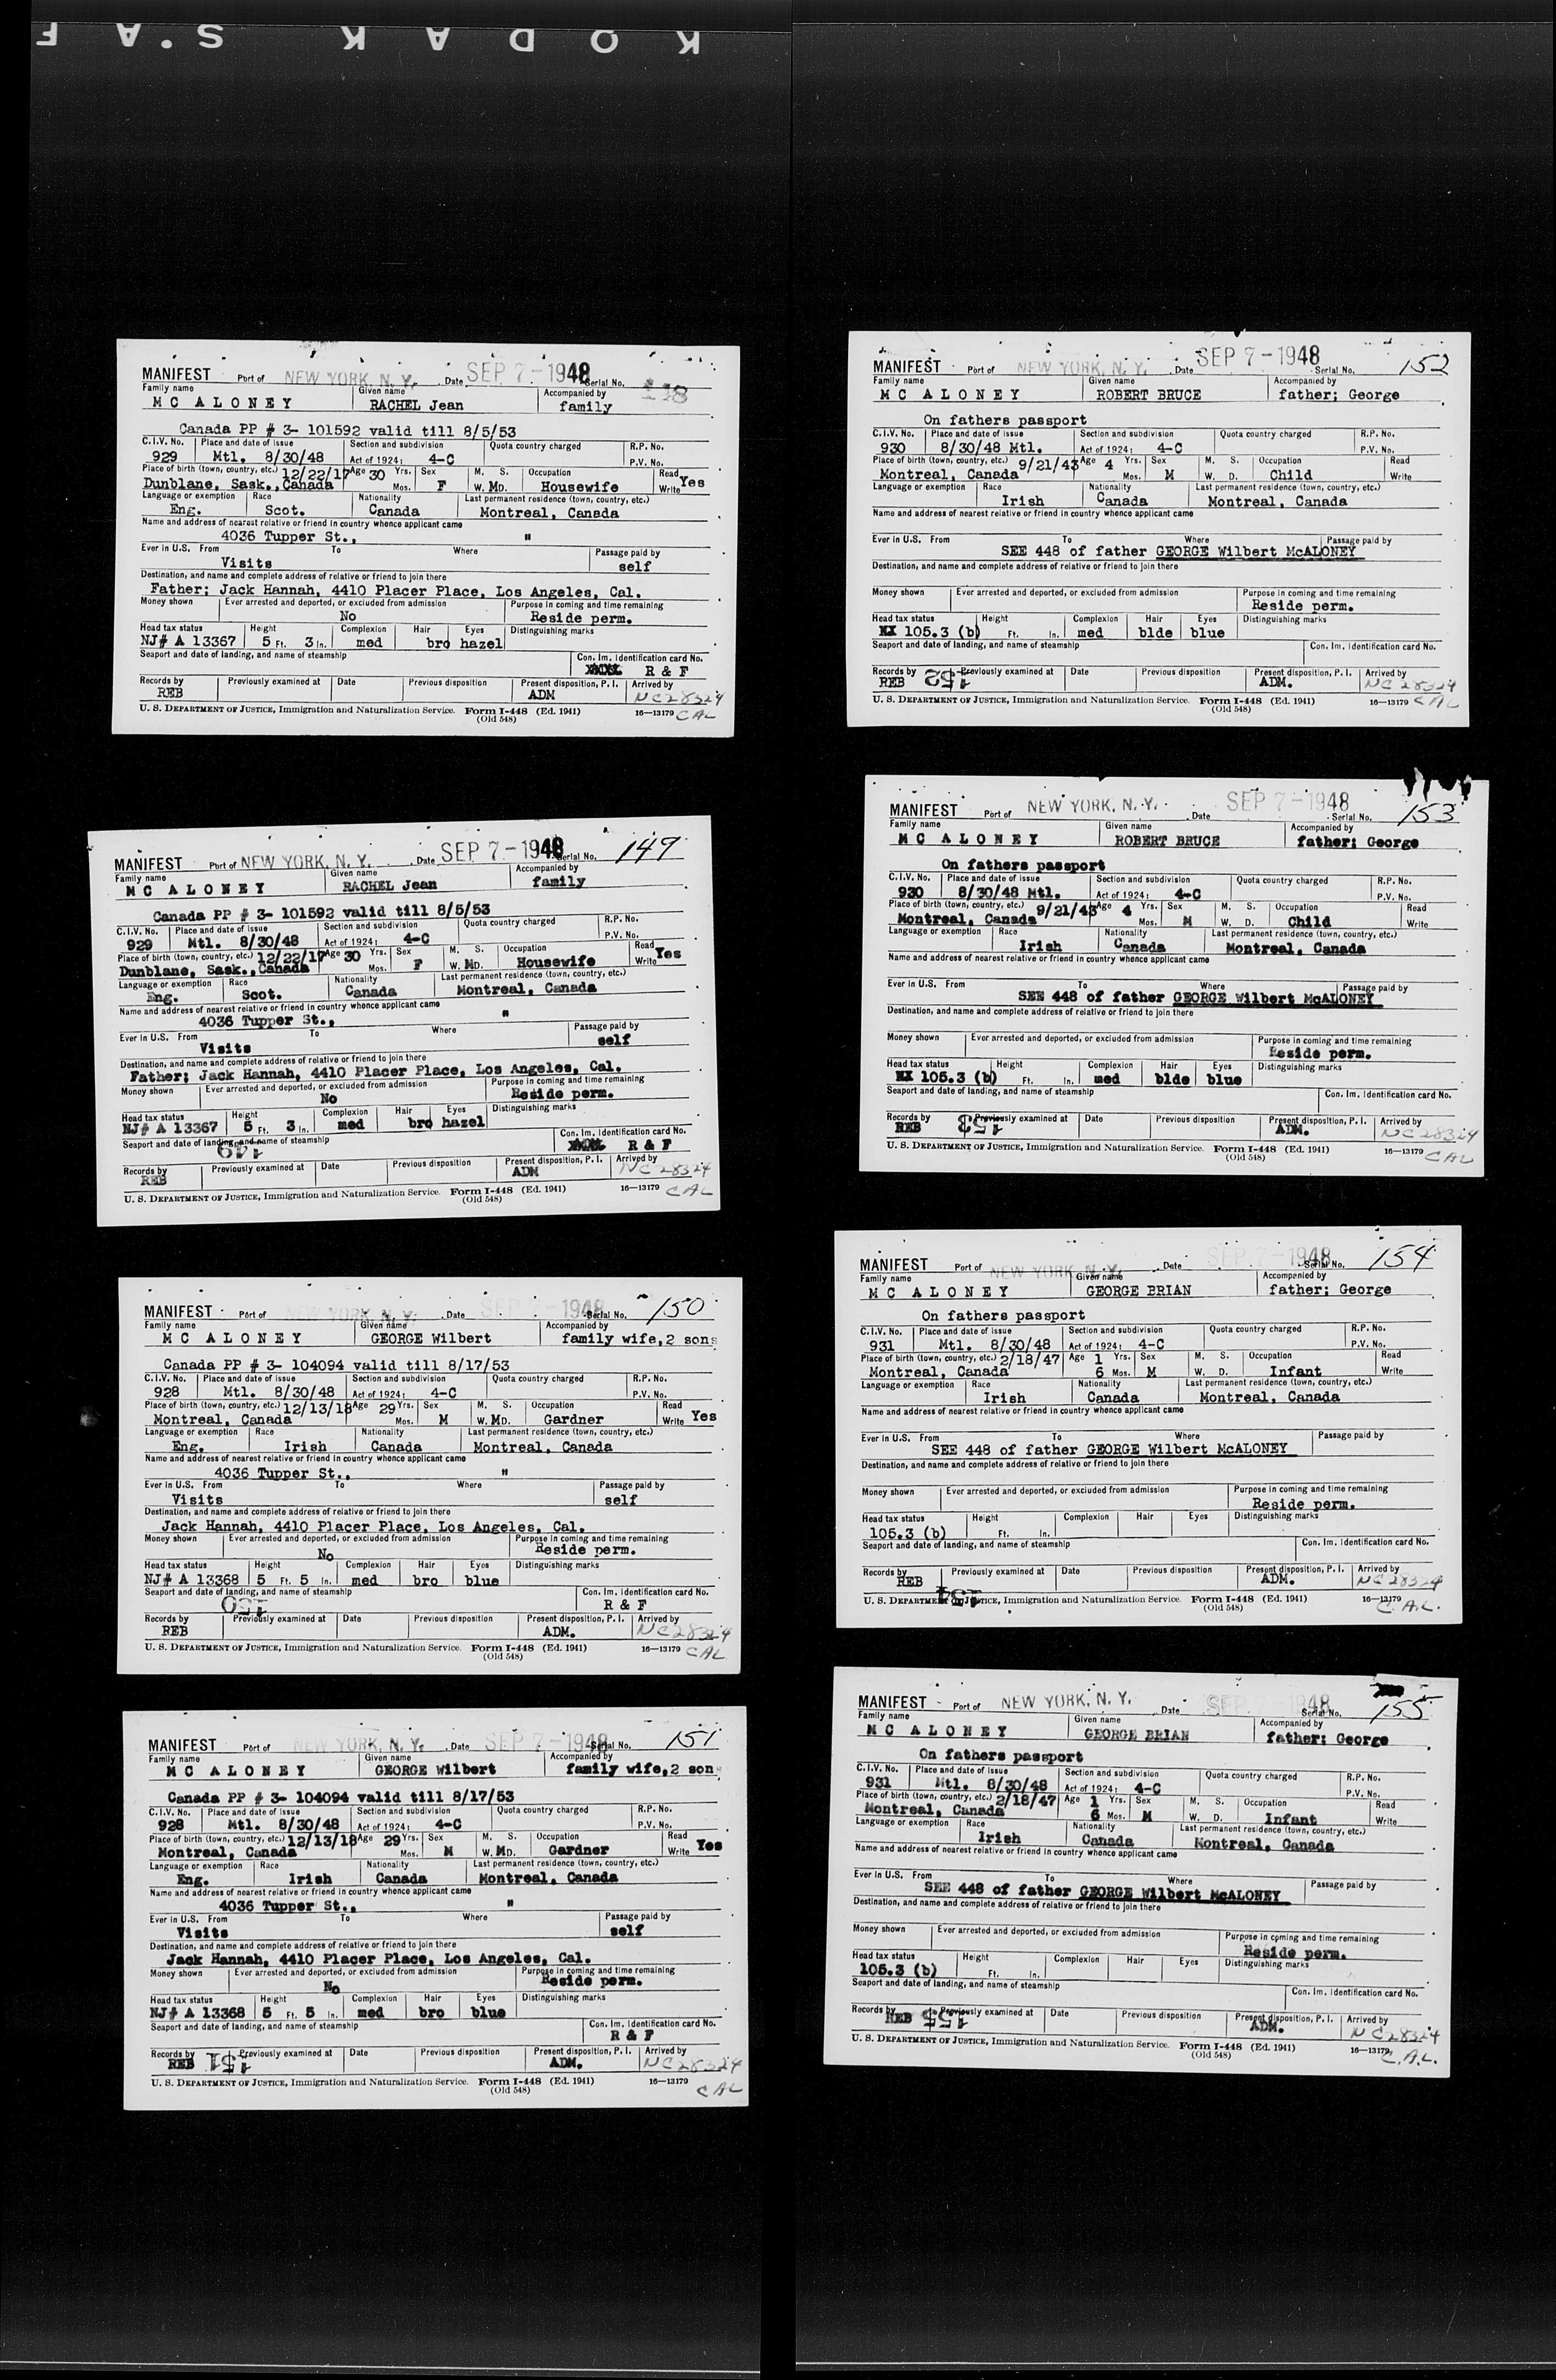 KODAK S.A F
MANIFEST Port of NEW YORK, N. Y. Date SEP 7-1948 Serial No.
Family name Given name Accompanied by
MC ALONEY RACHEL Jean family
Canada PP # 3- 101592 valid till 8/5/53
C.I.V. No. Place and date of issue Section and subdivision Quota country charged R.P. No.
929 Mtl. 8/30/48 Act of 1924: 4-C P.V. No.
Place of birth (town, country, etc.) 12/22/17 Age 30 Yrs. Sex M. S. Occupation Read Yes
Dunblane, Sask., Canada Mos. F W. MD. Housewife Write
Language or exemption Race Nationality Last permanent residence (town, country, etc.)
Eng. Scot. Canada Montreal, Canada
Name and address of nearest relative or friend in country whence applicant came
4036 Tupper St., "
Ever in U.S. From To Where Passage paid by
Visits self
Destination, and name and complete address of relative or friend to join there
Father; Jack Hannah, 4410 Placer Place, Los Angeles, Cal.
Money shown Ever arrested and deported, or excluded from admission Purpose in coming and time remaining
No Reside perm.
Head tax status Height Complexion Hair Eyes Distinguishing marks
NJ# A 13367 5 Ft. 3 In. med bro hazel
Seaport and date of landing, and name of steamship Con. Im. Identification card No.
R & F
Records by Previously examined at Date Previous disposition Present disposition, P. I. Arrived by
REB ADM NC28324
U. S. DEPARTMENT OF JUSTICE, Immigration and Naturalization Service. Form I-448 (Ed. 1941) 16—13179 CAL
(Old 548)
MANIFEST Port of NEW YORK, N. Y. Date SEP 7-1948 Serial No. 149
Family name Given name Accompanied by
MC ALONEY RACHEL Jean family
Canada PP # 3- 101592 valid till 8/5/53
C.I.V. No. Place and date of issue Section and subdivision Quota country charged R.P. No.
929 Mtl. 8/30/48 Act of 1924: 4-C P.V. No.
Place of birth (town, country, etc.) 12/22/17 Age 30 Yrs. Sex M. S. Occupation Read Yes
Dunblane, Sask., Canada Mos. F W. MD. Housewife Write
Language or exemption Race Nationality Last permanent residence (town, country, etc.)
Eng. Scot. Canada Montreal, Canada
Name and address of nearest relative or friend in country whence applicant came
4036 Tupper St., "
Ever in U.S. From To Where Passage paid by
Visits self
Destination, and name and complete address of relative or friend to join there
Father; Jack Hannah, 4410 Placer Place, Los Angeles, Cal.
Money shown Ever arrested and deported, or excluded from admission Purpose in coming and time remaining
No Reside perm.
Head tax status Height Complexion Hair Eyes Distinguishing marks
NJ# A 13367 5 Ft. 3 In. med bro hazel
Seaport and date of landing, and name of steamship Con. Im. Identification card No.
149 R & F
Records by Previously examined at Date Previous disposition Present disposition, P. I. Arrived by
REB ADM NC28324
U. S. DEPARTMENT OF JUSTICE, Immigration and Naturalization Service. Form I-448 (Ed. 1941) 16—13179 CAL
(Old 548)
MANIFEST Port of NEW YORK, N. Y. Date SEP 7-1948 Serial No. 150
Family name Given name Accompanied by
MC ALONEY GEORGE Wilbert family wife,2 sons
Canada PP # 3- 104094 valid till 8/17/53
C.I.V. No. Place and date of issue Section and subdivision Quota country charged R.P. No.
928 Mtl. 8/30/48 Act of 1924: 4-C P.V. No.
Place of birth (town, country, etc.) 12/13/18 Age 29 Yrs. Sex M. S. Occupation Read
Montreal, Canada Mos. M W. MD. Gardner Write Yes
Language or exemption Race Nationality Last permanent residence (town, country, etc.)
Eng. Irish Canada Montreal, Canada
Name and address of nearest relative or friend in country whence applicant came
4036 Tupper St., "
Ever in U.S. From To Where Passage paid by
Visits self
Destination, and name and complete address of relative or friend to join there
Jack Hannah, 4410 Placer Place, Los Angeles, Cal.
Money shown Ever arrested and deported, or excluded from admission Purpose in coming and time remaining
No Reside perm.
Head tax status Height Complexion Hair Eyes Distinguishing marks
NJ# A 13368 5 Ft. 5 In. med bro blue
Seaport and date of landing, and name of steamship Con. Im. Identification card No.
150 R & F
Records by Previously examined at Date Previous disposition Present disposition, P. I. Arrived by
REB ADM. NC28324
U. S. DEPARTMENT OF JUSTICE, Immigration and Naturalization Service. Form I-448 (Ed. 1941) 16—13179 CAL
(Old 548)
MANIFEST Port of NEW YORK, N. Y. Date SEP 7-1948 Serial No. 151
Family name Given name Accompanied by
MC ALONEY GEORGE Wilbert family wife,2 son
Canada PP # 3- 104094 valid till 8/17/53
C.I.V. No. Place and date of issue Section and subdivision Quota country charged R.P. No.
928 Mtl. 8/30/48 Act of 1924: 4-C P.V. No.
Place of birth (town, country, etc.) 12/13/18 Age 29 Yrs. Sex M. S. Occupation Read
Montreal, Canada Mos. M W. MD. Gardner Write Yes
Language or exemption Race Nationality Last permanent residence (town, country, etc.)
Eng. Irish Canada Montreal, Canada
Name and address of nearest relative or friend in country whence applicant came
4036 Tupper St., "
Ever in U.S. From To Where Passage paid by
Visits self
Destination, and name and complete address of relative or friend to join there
Jack Hannah, 4410 Placer Place, Los Angeles, Cal.
Money shown Ever arrested and deported, or excluded from admission Purpose in coming and time remaining
No Reside perm.
Head tax status Height Complexion Hair Eyes Distinguishing marks
NJ# A 13368 5 Ft. 5 In. med bro blue
Seaport and date of landing, and name of steamship Con. Im. Identification card No.
R & F
Records by Previously examined at Date Previous disposition Present disposition, P. I. Arrived by
REB 151 ADM. NC28324
U. S. DEPARTMENT OF JUSTICE, Immigration and Naturalization Service. Form I-448 (Ed. 1941) 16—13179 CAL
(Old 548)
MANIFEST Port of NEW YORK, N. Y. Date SEP 7-1948 Serial No. 152
Family name Given name Accompanied by
MC ALONEY ROBERT BRUCE father; George
On fathers passport
C.I.V. No. Place and date of issue Section and subdivision Quota country charged R.P. No.
930 8/30/48 Mtl. Act of 1924: 4-C P.V. No.
Place of birth (town, country, etc.) 9/21/43 Age 4 Yrs. Sex M. S. Occupation Read
Montreal, Canada Mos. M W. D. Child Write
Language or exemption Race Nationality Last permanent residence (town, country, etc.)
Irish Canada Montreal, Canada
Name and address of nearest relative or friend in country whence applicant came
Ever in U.S. From To Where Passage paid by
SEE 448 of father GEORGE Wilbert McALONEY
Destination, and name and complete address of relative or friend to join there
Money shown Ever arrested and deported, or excluded from admission Purpose in coming and time remaining
Reside perm.
Head tax status Height Complexion Hair Eyes Distinguishing marks
105.3 (b) Ft. In. med blde blue
Seaport and date of landing, and name of steamship Con. Im. Identification card No.
Records by 152 Previously examined at Date Previous disposition Present disposition, P. I. Arrived by
REB ADM. NC28324
U. S. DEPARTMENT OF JUSTICE, Immigration and Naturalization Service. Form I-448 (Ed. 1941) 16—13179 CAL
(Old 548)
MANIFEST Port of NEW YORK, N. Y. Date SEP 7-1948 Serial No. 153
Family name Given name Accompanied by
MC ALONEY ROBERT BRUCE father; George
On fathers passport
C.I.V. No. Place and date of issue Section and subdivision Quota country charged R.P. No.
930 8/30/48 Mtl. Act of 1924: 4-C P.V. No.
Place of birth (town, country, etc.) 9/21/43 Age 4 Yrs. Sex M. S. Occupation Read
Montreal, Canada Mos. M W. D. Child Write
Language or exemption Race Nationality Last permanent residence (town, country, etc.)
Irish Canada Montreal, Canada
Name and address of nearest relative or friend in country whence applicant came
Ever in U.S. From To Where Passage paid by
SEE 448 of father GEORGE Wilbert McALONEY
Destination, and name and complete address of relative or friend to join there
Money shown Ever arrested and deported, or excluded from admission Purpose in coming and time remaining
Reside perm.
Head tax status Height Complexion Hair Eyes Distinguishing marks
105.3 (b) Ft. In. med blde blue
Seaport and date of landing, and name of steamship Con. Im. Identification card No.
Records by 153 Previously examined at Date Previous disposition Present disposition, P. I. Arrived by
REB ADM. NC28324
U. S. DEPARTMENT OF JUSTICE, Immigration and Naturalization Service. Form I-448 (Ed. 1941) 16—13179 CAL
(Old 548)
MANIFEST Port of NEW YORK, N. Y. Date SEP 7-1948 Serial No. 154
Family name Given name Accompanied by
MC ALONEY GEORGE BRIAN father; George
On fathers passport
C.I.V. No. Place and date of issue Section and subdivision Quota country charged R.P. No.
931 Mtl. 8/30/48 Act of 1924: 4-C P.V. No.
Place of birth (town, country, etc.) 2/18/47 Age 1 Yrs. Sex M. S. Occupation Read
Montreal, Canada 6 Mos. M W. D. Infant Write
Language or exemption Race Nationality Last permanent residence (town, country, etc.)
Irish Canada Montreal, Canada
Name and address of nearest relative or friend in country whence applicant came
Ever in U.S. From To Where Passage paid by
SEE 448 of father GEORGE Wilbert McALONEY
Destination, and name and complete address of relative or friend to join there
Money shown Ever arrested and deported, or excluded from admission Purpose in coming and time remaining
Reside perm.
Head tax status Height Complexion Hair Eyes Distinguishing marks
105.3 (b) Ft. In.
Seaport and date of landing, and name of steamship Con. Im. Identification card No.
Records by Previously examined at Date Previous disposition Present disposition, P. I. Arrived by
REB 154 ADM. NC28324
U. S. DEPARTMENT OF JUSTICE, Immigration and Naturalization Service. Form I-448 (Ed. 1941) 16—13179 C.A.L.
(Old 548)
MANIFEST Port of NEW YORK, N. Y. Date SEP 7-1948 Serial No. 155
Family name Given name Accompanied by
MC ALONEY GEORGE BRIAN father; George
On fathers passport
C.I.V. No. Place and date of issue Section and subdivision Quota country charged R.P. No.
931 Mtl. 8/30/48 Act of 1924: 4-C P.V. No.
Place of birth (town, country, etc.) 2/18/47 Age 1 Yrs. Sex M. S. Occupation Read
Montreal, Canada 6 Mos. M W. D. Infant Write
Language or exemption Race Nationality Last permanent residence (town, country, etc.)
Irish Canada Montreal, Canada
Name and address of nearest relative or friend in country whence applicant came
Ever in U.S. From To Where Passage paid by
SEE 448 of father GEORGE Wilbert McALONEY
Destination, and name and complete address of relative or friend to join there
Money shown Ever arrested and deported, or excluded from admission Purpose in coming and time remaining
Reside perm.
Head tax status Height Complexion Hair Eyes Distinguishing marks
105.3 (b) Ft. In.
Seaport and date of landing, and name of steamship Con. Im. Identification card No.
Records by 155 Previously examined at Date Previous disposition Present disposition, P. I. Arrived by
REB ADM. NC28324
U. S. DEPARTMENT OF JUSTICE, Immigration and Naturalization Service. Form I-448 (Ed. 1941) 16—13179 C.A.L.
(Old 548)